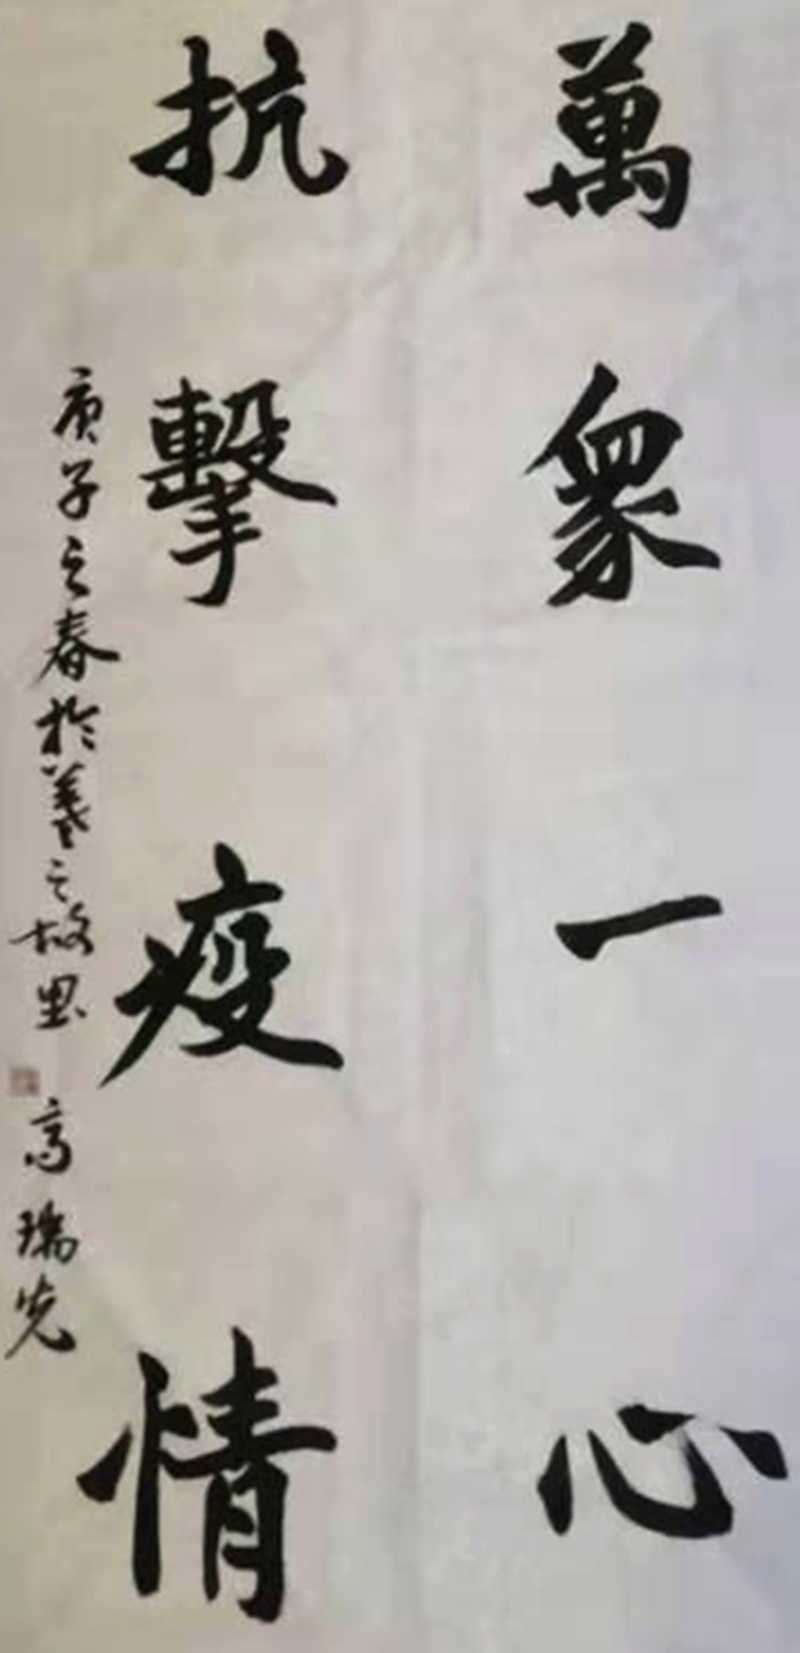 萬眾一心
抗擊疫情
庚子之春於羲之故里
高瑞先